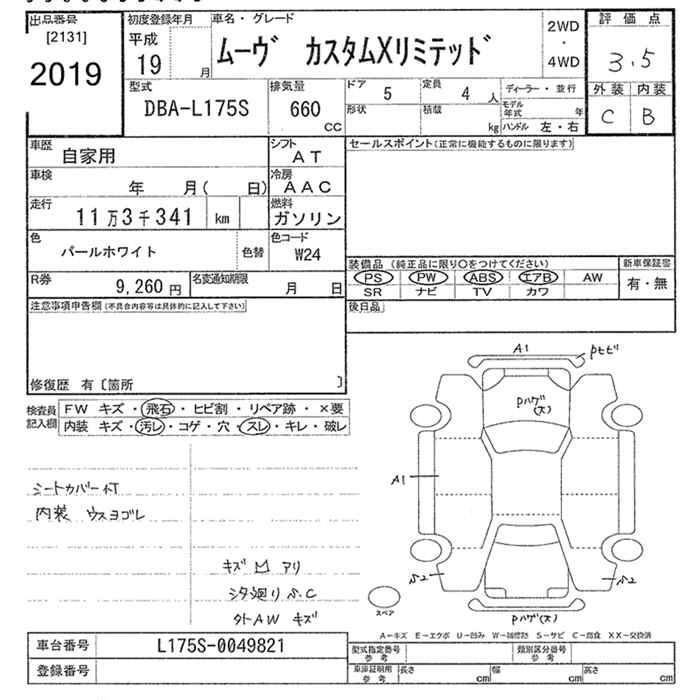 出品番号 初度登録年月 車名・グレード 評価点
[2131]
2019
平成
19 月
ムーヴ カスタムXリミテッド
2WD
・
4WD
3.5
外装 内装
C B
型式 排気量 ドア 5 定員 4 人 ディーラー・並行
DBA-L175S 660 CC
形状 積載 kg
モデル年式 年
ハンドル 左・右
車歴 自家用 シフト AT
セールスポイント(正常に機能するものに限ります)
車検 年 月( 日) 冷房 AAC
走行 11万3千341 km 燃料 ガソリン
色 パールホワイト 色替 色コード W24
装備品(純正品に限り○をつけてください) 新車保証書
PS PW ABS エアB AW 有・無
SR ナビ TV カワ
R券 9,260円 名変通知期限 月 日
後日品
注意事項申告欄(不具合内容等は具体的に記入して下さい)
修復歴 有〔箇所 〕
検査員記入欄
FW キズ・飛石・ヒビ割・リペア跡・×要
内装 キズ・汚レ・コゲ・穴・スレ・キレ・破レ
シートカバー付
内装 ウスヨゴレ
キズ M アリ
シタ廻り S.C
外AW キズ
A1 Pトビ
Pハゲ(大)
A1
S2 S2
スペア
Pハゲ(大)
A−キズ E−エクボ U−凹み W−補修跡 S−サビ C−腐食 XX−交換済
車台番号 L175S-0049821
登録番号
型式指定番号 参考 類別区分番号 参考
車庫証明用 参考 長さ cm 幅 cm 高さ cm